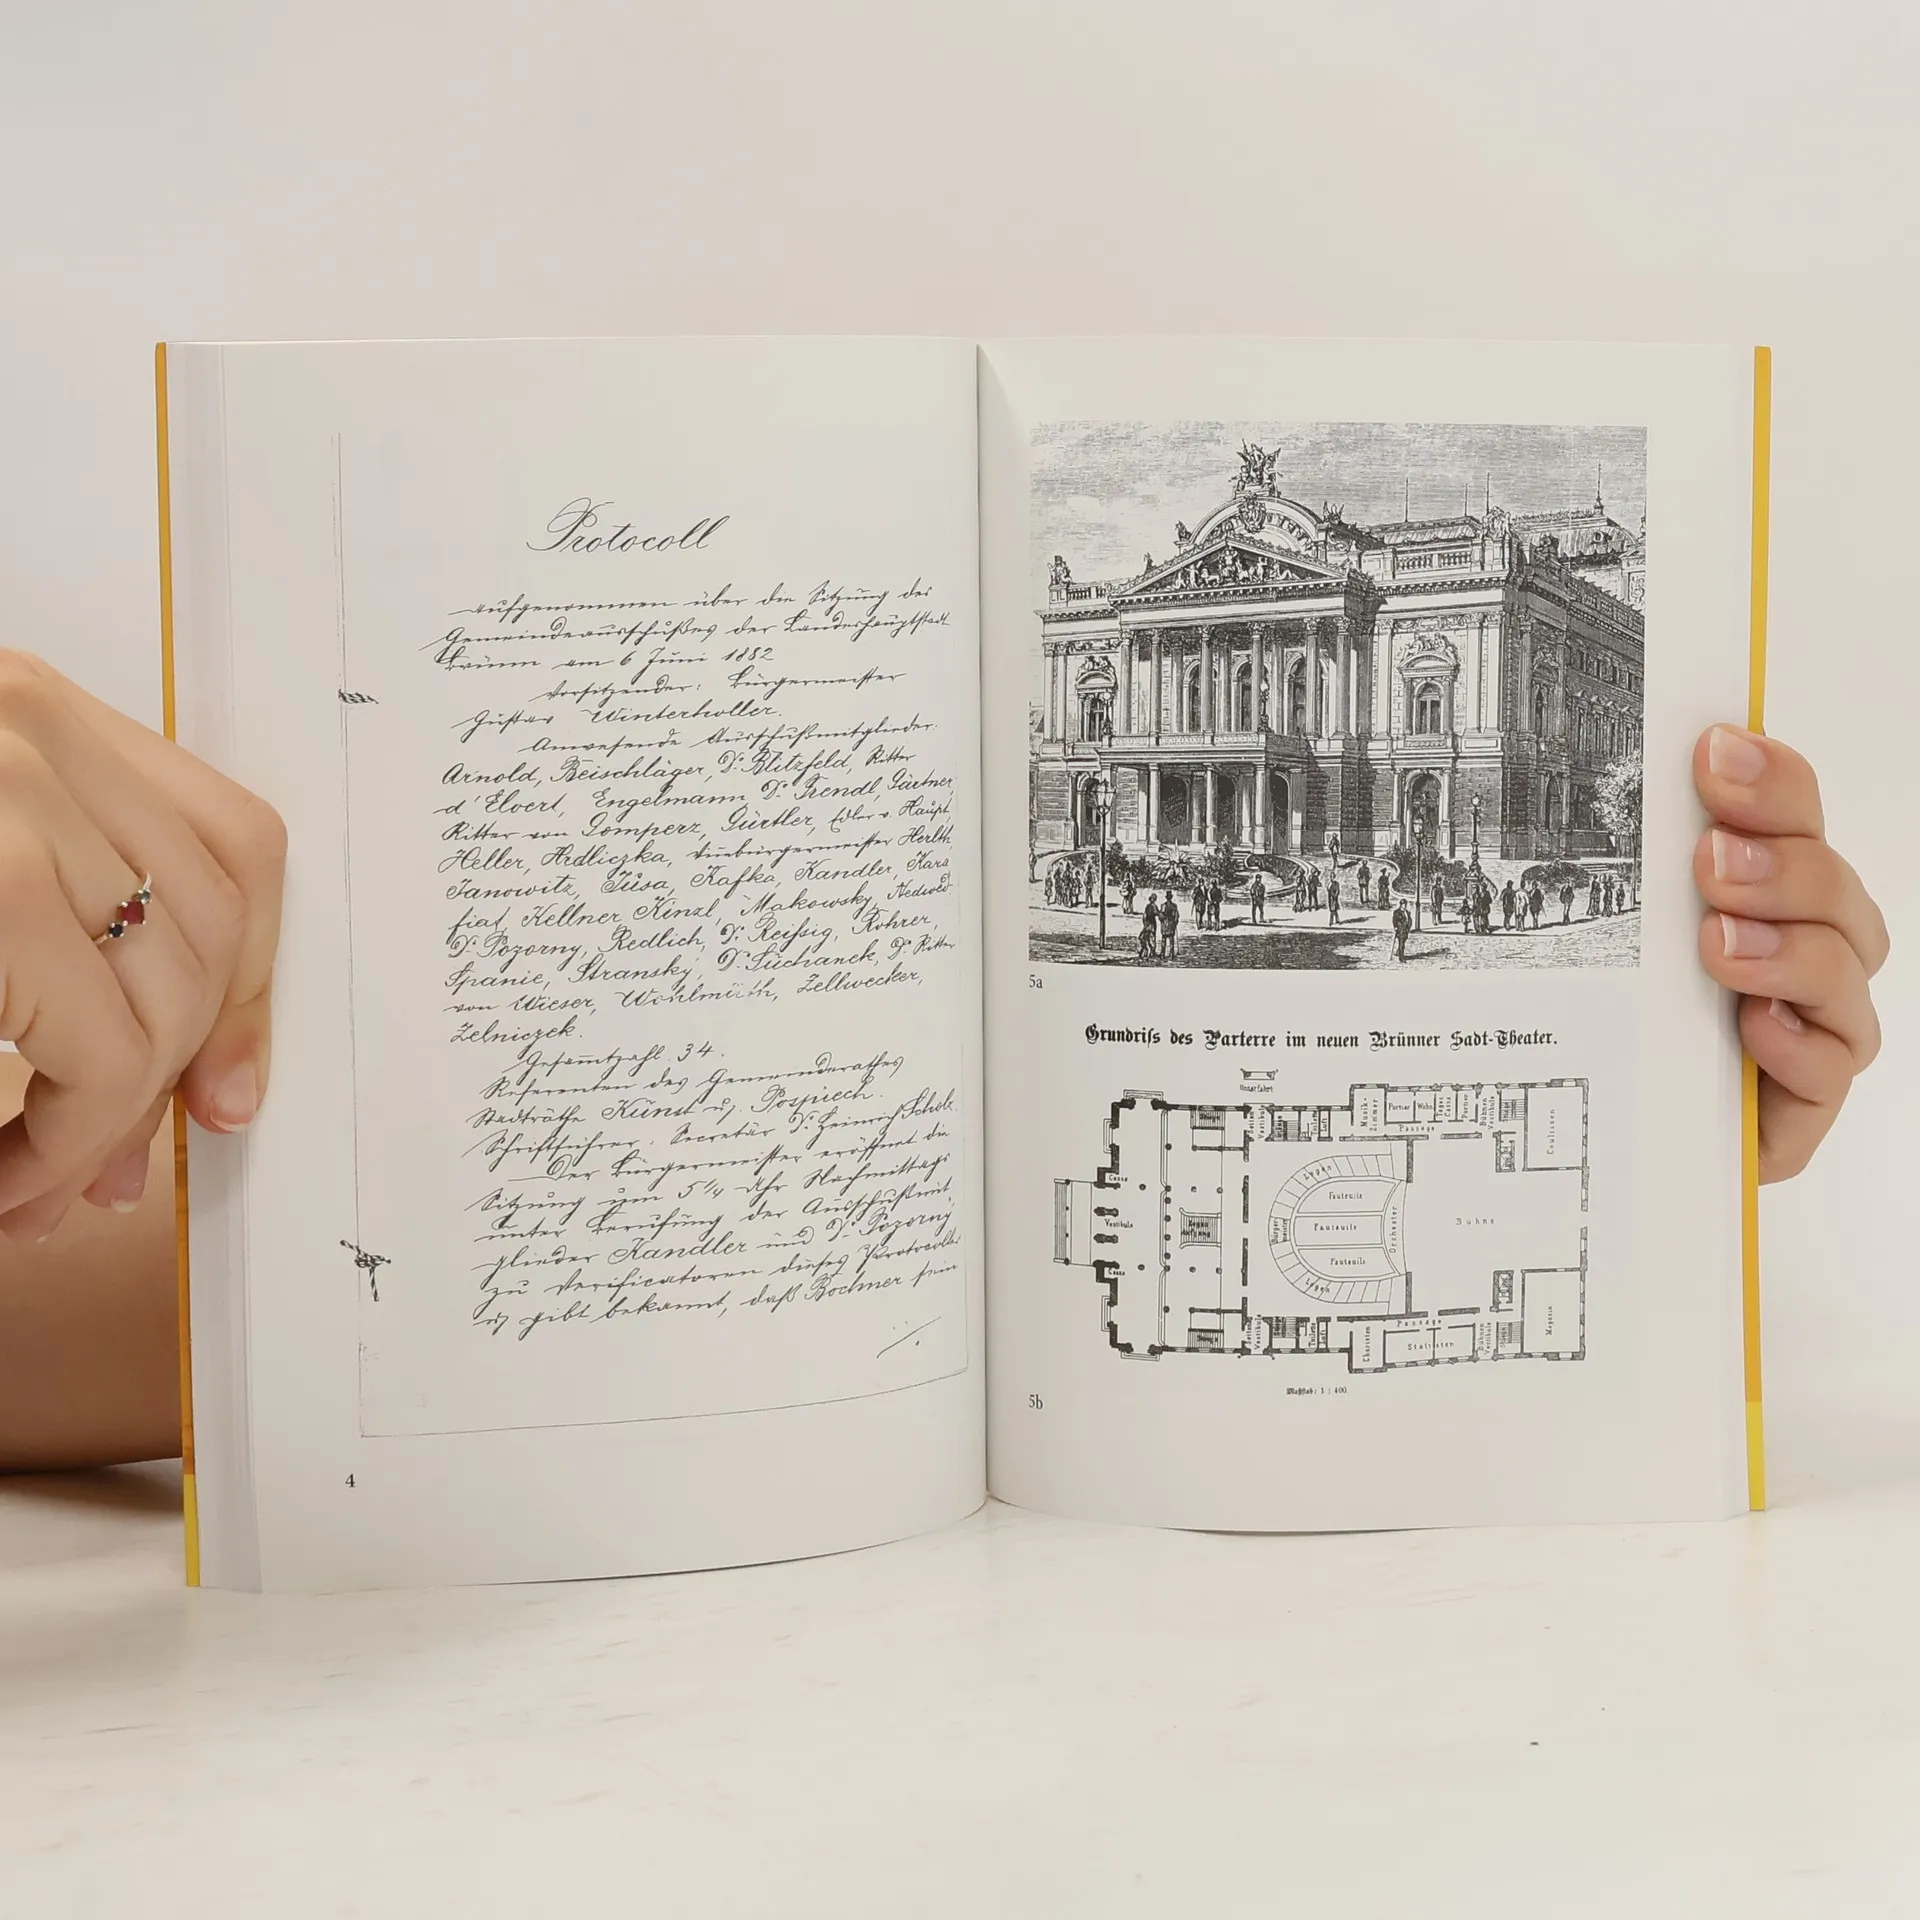 Protocoll
aufgenommen über die Sitzung des
Gemeindeausschußes der Landeshauptstadt
Brünn am 6 Juni 1882
Vorsitzender: Bürgermeister
Gustav Winterholler.
Anwesende Ausschußmitglieder:
Arnold, Beischläger, Dr. Blitzfeld, Ritter
d'Elvert, Engelmann Dr. Fendl, Gärtner,
Ritter von Gomperz, Gürtler, Edler v. Haupt,
Heller, Hrdliczka, Vicebürgermeister Herlth,
Janowitz, Jusa, Kafka, Kandler, Kara
fiat, Kellner Kinzl, Makowsky, Nedwed
Dr. Pozorny, Redlich, Dr. Reißig, Rohrer,
Spanie, Stransky, Dr. Suchanek, Dr. Ritter
von Wieser, Wohlmuth, Zellwecker,
Zelniczek.
Gesammtzahl 34.
Referenten des Gemeinderathes
Stadträthe Künst u. Pospiech.
Schriftführer: Secretär Dr. Heinrich Scholz
Der Bürgermeister eröffnet die
Sitzung um 5 1/4 Uhr Nachmittags
unter Berufung der Ausschußmit
glieder Kandler und Dr. Pozorny
zu Verificatoren dieses Protocolles
u. gibt bekannt, daß Bochner sein
4
5a
Grundriss des Parterre im neuen Brünner Sadt-Theater.
Unterfahrt
Musik-Zimmer
Portier
Wohn
Tages Cassa
Portier
Bühnen Vestibule
Coulissen
Seiten Vestibule
Toilette
Luft
Passage
Cassa
Vestibule
Cassa
Logen
Fauteuils
Fauteuils
Fauteuils
Logen
Bürgermeister
Orchester
Bühne
Seiten Vestibule
Toilette
Luft
Passage
Choristen
Statisten
Bühnen Vestibule
Magazin
Maßstab: 1 : 400.
5b